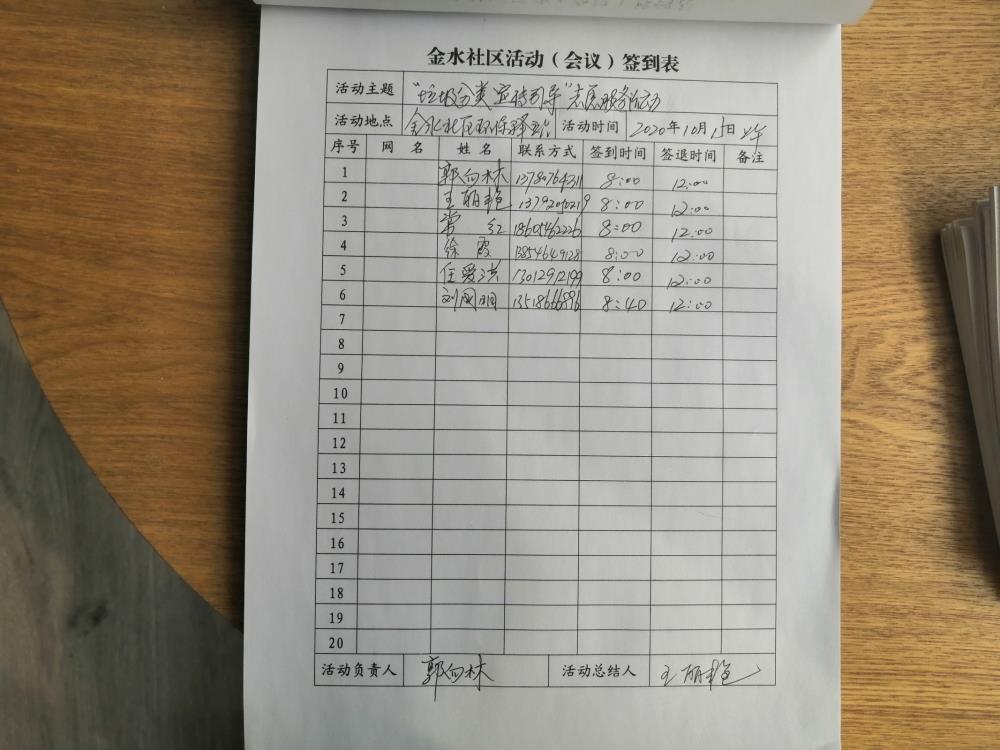 金水社区活动（会议）签到表
活动主题 “垃圾分类宣传引导”志愿服务活动
活动地点 金水社区环保驿站 活动时间 2020年10月15日上午
序号 网 名 姓 名 联系方式 签到时间 签退时间 备注
1 郭向林 13780764311 8:00 12:00
2 王丽艳 13792050219 8:00 12:00
3 常 红 18605462226 8:00 12:00
4 徐 霞 13854649128 8:00 12:00
5 任爱洪 13012912199 8:00 12:00
6 刘 8:40 12:00
7
8
9
10
11
12
13
14
15
16
17
18
19
20
活动负责人 郭向林 活动总结人 王丽艳